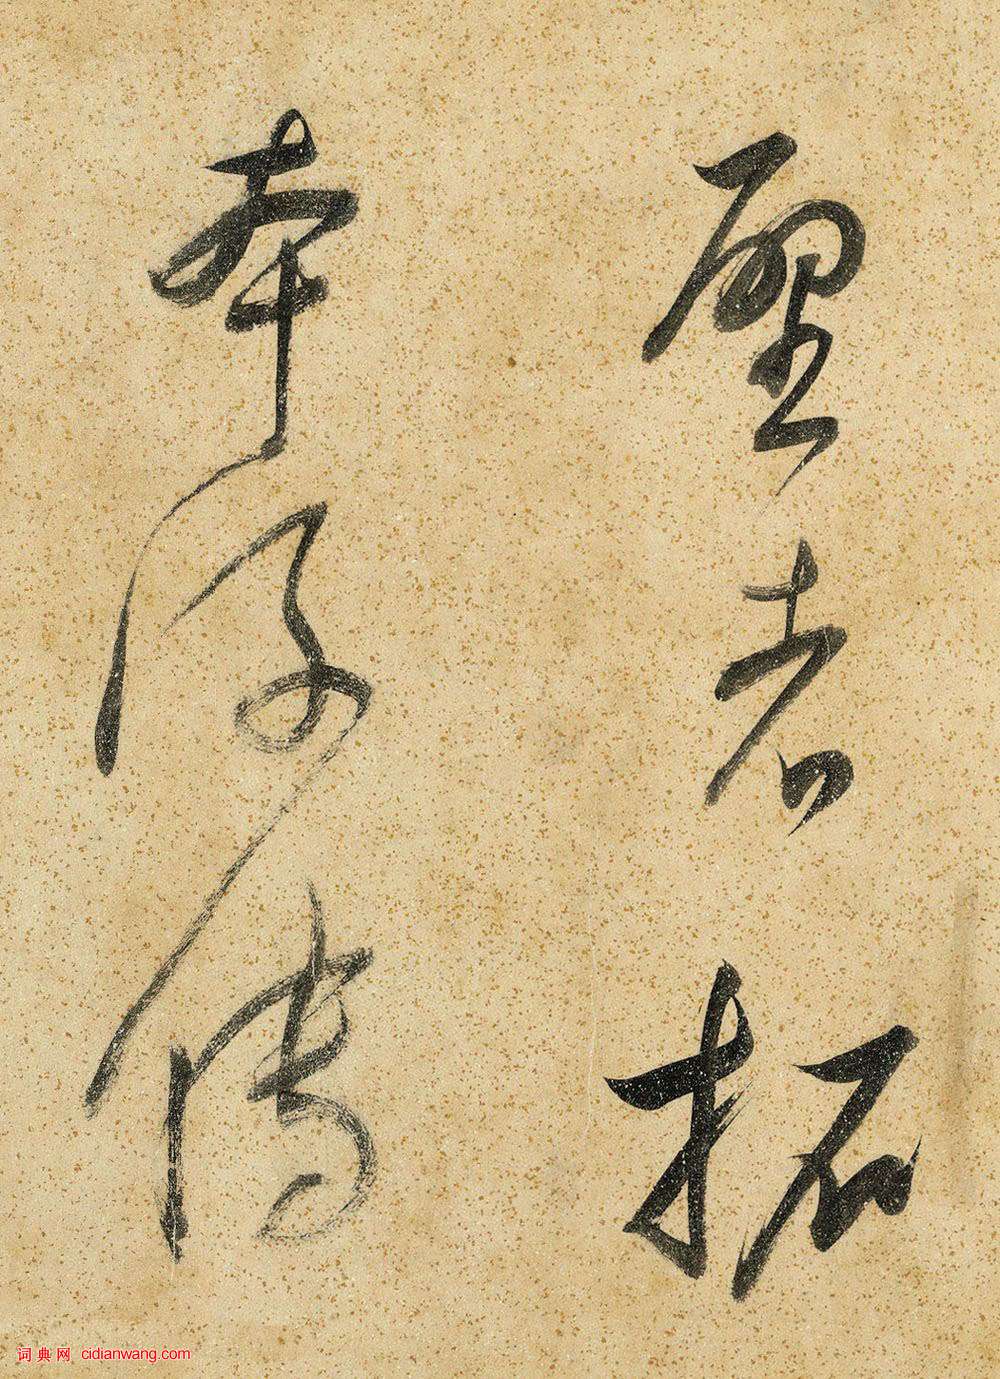 者拓
本傳
词典网 cidianwang.com